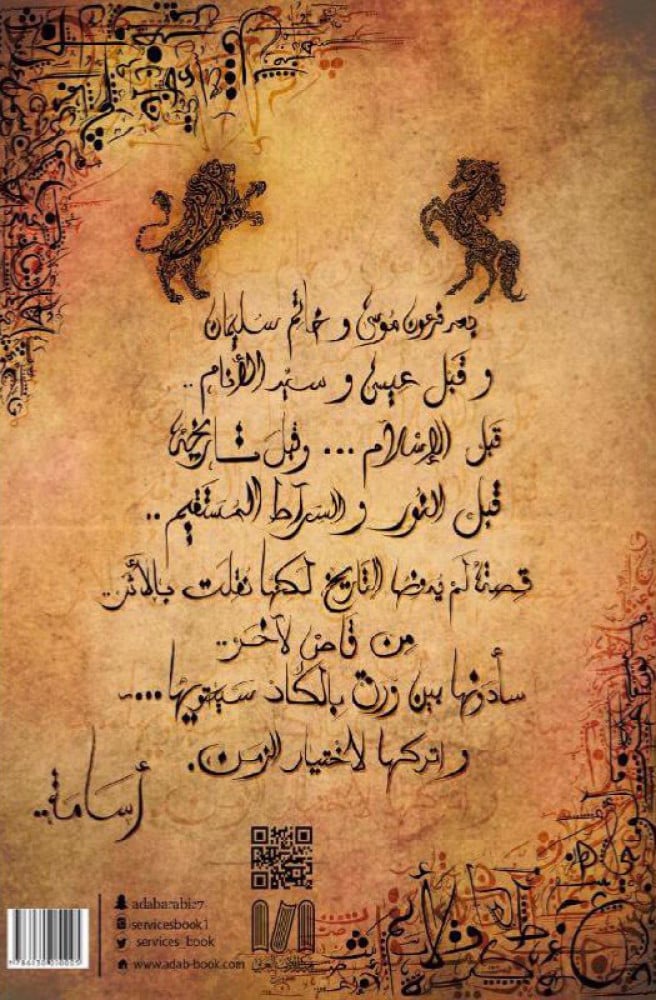 بعد فرعون موسى و خاتم سليمان
و قبل عيسى و سيد الأنام ..
قبل الإسلام ... وقبل تاريخه
قبل النور و السراط المستقيم ..
قصة لم يدونها التاريخ لكنها نقلت بالأثر ..
من قاص لآخر ..
سأدونها بين ورق بالكاد سيحويها ...
و اتركها لاختيار الزمن .
أسامة ..
adabarabic7
servicesbook1
services_book
www.adab-book.com